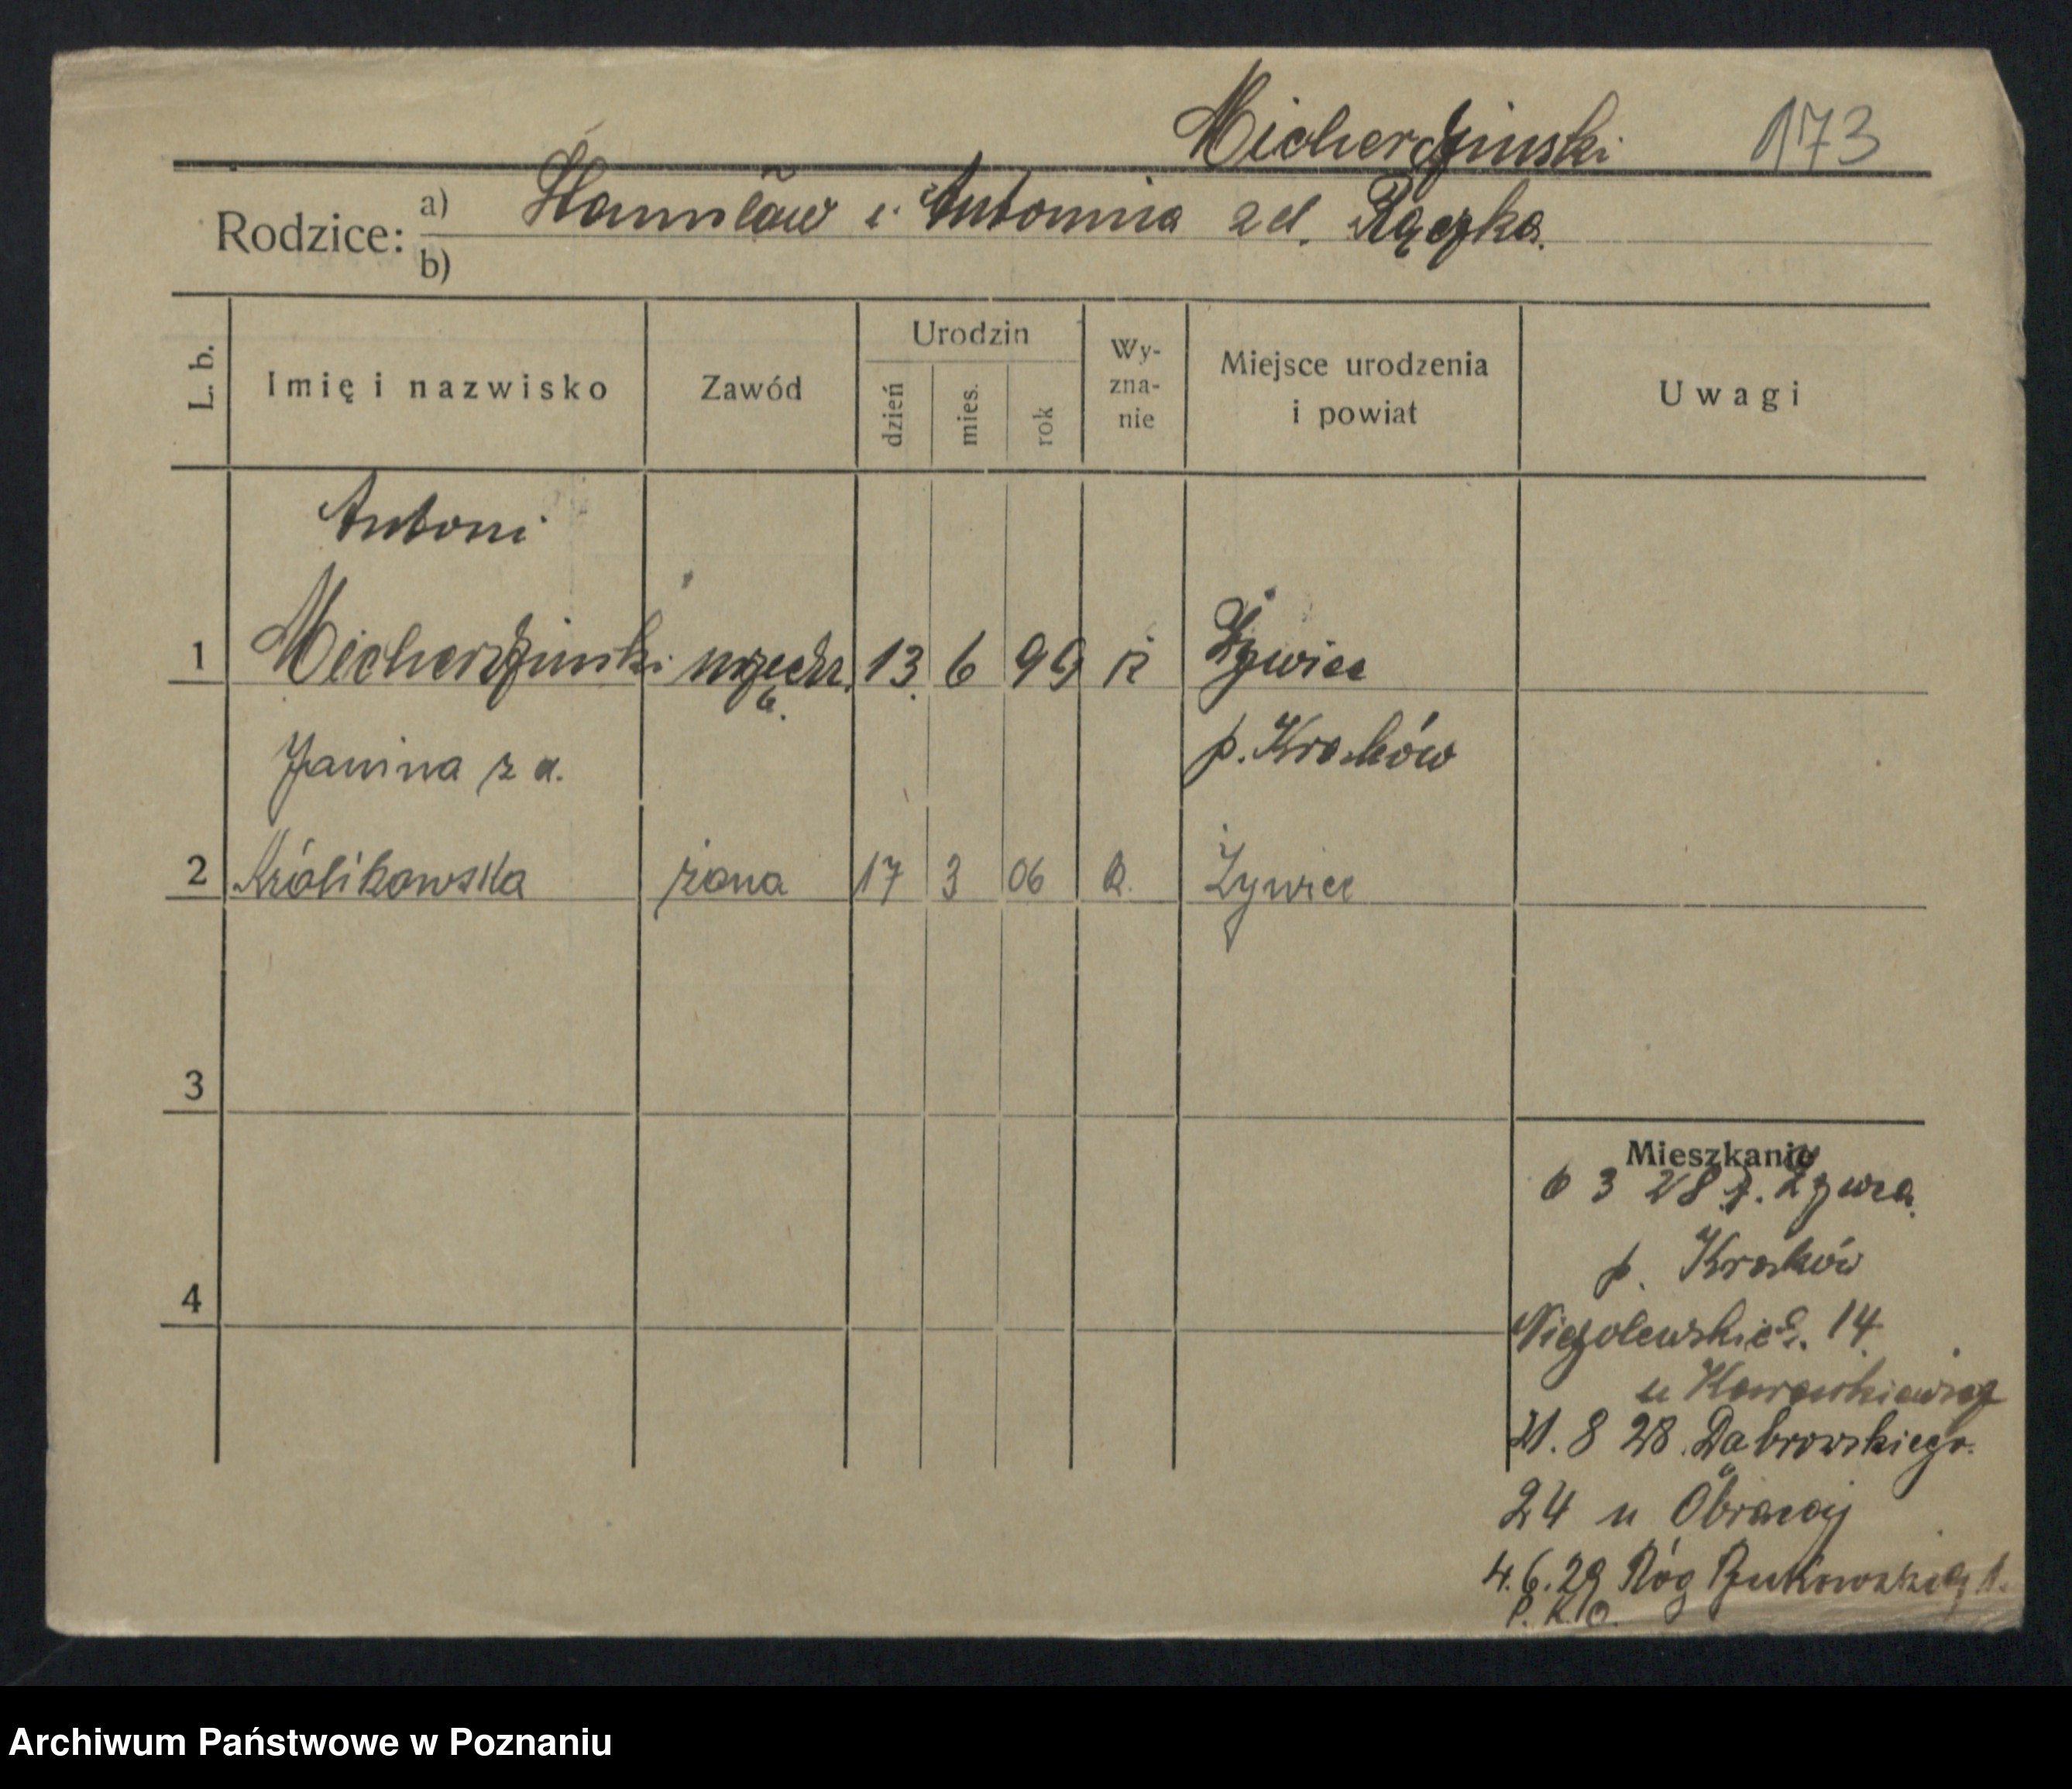 Micherdziński 173
Rodzice: a) Stanisław i Antonina zd. Rączka.
b)
L. b. Imię i nazwisko Zawód Urodzin dzień mies. rok Wy-zna-nie Miejsce urodzenia i powiat Uwagi
Antoni
1 Micherdziński 13. 6 99 R Żywiec
p. Kraków
Janina z d.
2 Królikowska żona 17 3 06 R. Żywiec
3
Mieszkanie
6 3 28 z. Żywca.
p. Kraków
4
14.
u
21. 8 28. Dąbrowskiego.
24 u
4. 6. 29 Róg
P. K. O.
Archiwum Państwowe w Poznaniu